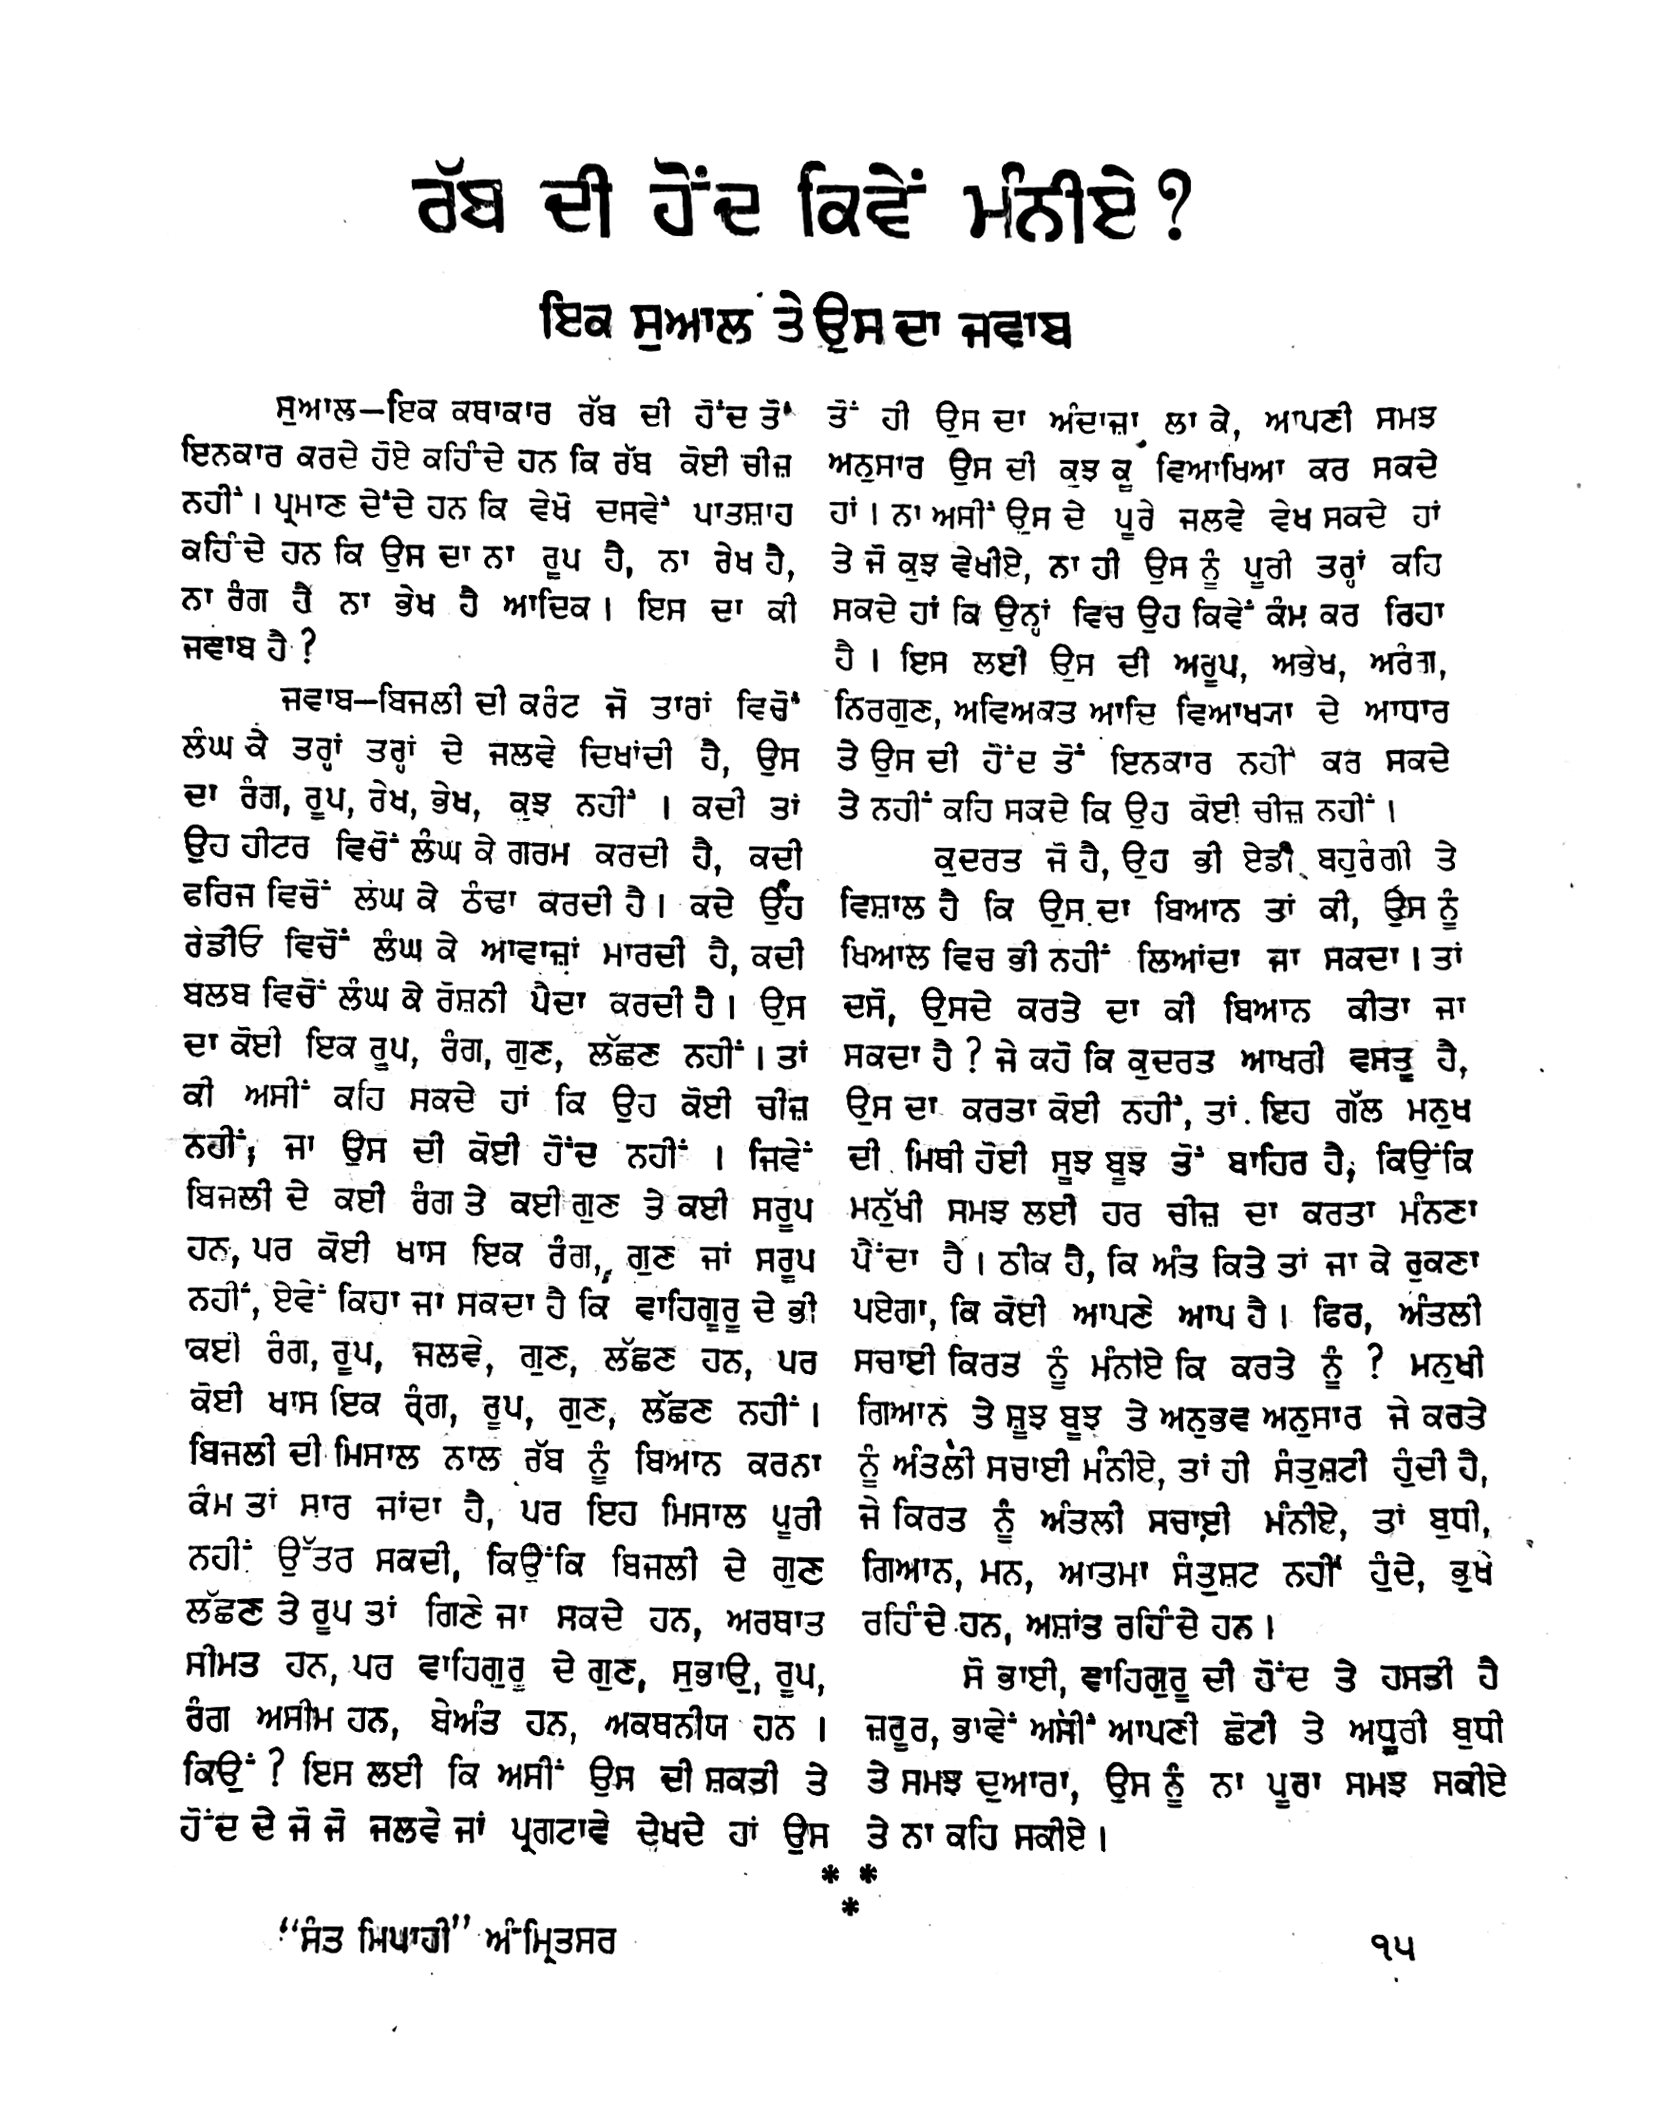 ਰੱਬ ਦੀ ਹੋਂਦ ਕਿਵੇਂ ਮੰਨੀਏ ?
ਇਕ ਸੁਆਲ ਤੇ ਉਸ ਦਾ ਜਵਾਬ
ਸੁਆਲ—ਇਕ ਕਥਾਕਾਰ ਰੱਬ ਦੀ ਹੋਂਦ ਤੋਂ
ਇਨਕਾਰ ਕਰਦੇ ਹੋਏ ਕਹਿੰਦੇ ਹਨ ਕਿ ਰੱਬ ਕੋਈ ਚੀਜ਼
ਨਹੀਂ । ਪ੍ਰਮਾਣ ਦੇਂਦੇ ਹਨ ਕਿ ਵੇਖੋ ਦਸਵੇਂ ਪਾਤਸ਼ਾਹ
ਕਹਿੰਦੇ ਹਨ ਕਿ ਉਸ ਦਾ ਨਾ ਰੂਪ ਹੈ, ਨਾ ਰੇਖ ਹੈ,
ਨਾ ਰੰਗ ਹੈ ਨਾ ਭੇਖ ਹੈ ਆਦਿਕ । ਇਸ ਦਾ ਕੀ
ਜਵਾਬ ਹੈ ?
ਜਵਾਬ—ਬਿਜਲੀ ਦੀ ਕਰੰਟ ਜੋ ਤਾਰਾਂ ਵਿਚੋਂ
ਲੰਘ ਕੇ ਤਰ੍ਹਾਂ ਤਰ੍ਹਾਂ ਦੇ ਜਲਵੇ ਦਿਖਾਂਦੀ ਹੈ, ਉਸ
ਦਾ ਰੰਗ, ਰੂਪ, ਰੇਖ, ਭੇਖ, ਕੁਝ ਨਹੀਂ । ਕਦੀ ਤਾਂ
ਉਹ ਹੀਟਰ ਵਿਚੋਂ ਲੰਘ ਕੇ ਗਰਮ ਕਰਦੀ ਹੈ, ਕਦੀ
ਫਰਿਜ ਵਿਚੋਂ ਲੰਘ ਕੇ ਠੰਢਾ ਕਰਦੀ ਹੈ । ਕਦੇ ਉਹ
ਰੇਡੀਓ ਵਿਚੋਂ ਲੰਘ ਕੇ ਆਵਾਜ਼ਾਂ ਮਾਰਦੀ ਹੈ, ਕਦੀ
ਬਲਬ ਵਿਚੋਂ ਲੰਘ ਕੇ ਰੋਸ਼ਨੀ ਪੈਦਾ ਕਰਦੀ ਹੈ । ਉਸ
ਦਾ ਕੋਈ ਇਕ ਰੂਪ, ਰੰਗ, ਗੁਣ, ਲੱਛਣ ਨਹੀਂ । ਤਾਂ
ਕੀ ਅਸੀਂ ਕਹਿ ਸਕਦੇ ਹਾਂ ਕਿ ਉਹ ਕੋਈ ਚੀਜ਼
ਨਹੀਂ, ਜਾ ਉਸ ਦੀ ਕੋਈ ਹੋਂਦ ਨਹੀਂ । ਜਿਵੇਂ
ਬਿਜਲੀ ਦੇ ਕਈ ਰੰਗ ਤੇ ਕਈ ਗੁਣ ਤੇ ਕਈ ਸਰੂਪ
ਹਨ, ਪਰ ਕੋਈ ਖਾਸ ਇਕ ਰੰਗ, ਗੁਣ ਜਾਂ ਸਰੂਪ
ਨਹੀਂ, ਏਵੇਂ ਕਿਹਾ ਜਾ ਸਕਦਾ ਹੈ ਕਿ ਵਾਹਿਗੂਰੂ ਦੇ ਭੀ
ਕਈ ਰੰਗ, ਰੂਪ, ਜਲਵੇ, ਗੁਣ, ਲੱਛਣ ਹਨ, ਪਰ
ਕੋਈ ਖਾਸ ਇਕ ਰੰਗ, ਰੂਪ, ਗੁਣ, ਲੱਛਣ ਨਹੀਂ ।
ਬਿਜਲੀ ਦੀ ਮਿਸਾਲ ਨਾਲ ਰੱਬ ਨੂੰ ਬਿਆਨ ਕਰਨਾ
ਕੰਮ ਤਾਂ ਸਾਰ ਜਾਂਦਾ ਹੈ, ਪਰ ਇਹ ਮਿਸਾਲ ਪੂਰੀ
ਨਹੀਂ ਉੱਤਰ ਸਕਦੀ, ਕਿਉਂਕਿ ਬਿਜਲੀ ਦੇ ਗੁਣ
ਲੱਛਣ ਤੇ ਰੂਪ ਤਾਂ ਗਿਣੇ ਜਾ ਸਕਦੇ ਹਨ, ਅਰਥਾਤ
ਸੀਮਤ ਹਨ, ਪਰ ਵਾਹਿਗੁਰੂ ਦੇ ਗੁਣ, ਸੁਭਾਉ, ਰੂਪ,
ਰੰਗ ਅਸੀਮ ਹਨ, ਬੇਅੰਤ ਹਨ, ਅਕਥਨੀਯ ਹਨ ।
ਕਿਉਂ ? ਇਸ ਲਈ ਕਿ ਅਸੀਂ ਉਸ ਦੀ ਸ਼ਕਤੀ ਤੇ
ਹੋਂਦ ਦੇ ਜੋ ਜੋ ਜਲਵੇ ਜਾਂ ਪ੍ਰਗਟਾਵੇ ਦੇਖਦੇ ਹਾਂ ਉਸ
ਤੋਂ ਹੀ ਉਸ ਦਾ ਅੰਦਾਜ਼ਾ ਲਾ ਕੇ, ਆਪਣੀ ਸਮਝ
ਅਨੁਸਾਰ ਉਸ ਦੀ ਕੁਝ ਕੁ ਵਿਆਖਿਆ ਕਰ ਸਕਦੇ
ਹਾਂ । ਨਾ ਅਸੀਂ ਉਸ ਦੇ ਪੂਰੇ ਜਲਵੇ ਵੇਖ ਸਕਦੇ ਹਾਂ
ਤੇ ਜੋ ਕੁਝ ਵੇਖੀਏ, ਨਾ ਹੀ ਉਸ ਨੂੰ ਪੂਰੀ ਤਰ੍ਹਾਂ ਕਹਿ
ਸਕਦੇ ਹਾਂ ਕਿ ਉਨ੍ਹਾਂ ਵਿਚ ਉਹ ਕਿਵੇਂ ਕੰਮ ਕਰ ਰਿਹਾ
ਹੈ । ਇਸ ਲਈ ਉਸ ਦੀ ਅਰੂਪ, ਅਭੇਖ, ਅਰੰਗ,
ਨਿਰਗੁਣ, ਅਵਿਅਕਤ ਆਦਿ ਵਿਆਖਯਾ ਦੇ ਆਧਾਰ
ਤੇ ਉਸ ਦੀ ਹੋਂਦ ਤੋਂ ਇਨਕਾਰ ਨਹੀਂ ਕਰ ਸਕਦੇ
ਤੇ ਨਹੀਂ ਕਹਿ ਸਕਦੇ ਕਿ ਉਹ ਕੋਈ ਚੀਜ਼ ਨਹੀਂ ।
ਕੁਦਰਤ ਜੋ ਹੈ, ਉਹ ਭੀ ਏਡੀ ਬਹੁਰੰਗੀ ਤੇ
ਵਿਸ਼ਾਲ ਹੈ ਕਿ ਉਸ ਦਾ ਬਿਆਨ ਤਾਂ ਕੀ, ਉਸ ਨੂੰ
ਖਿਆਲ ਵਿਚ ਭੀ ਨਹੀਂ ਲਿਆਂਦਾ ਜਾ ਸਕਦਾ । ਤਾਂ
ਦਸੋ, ਉਸਦੇ ਕਰਤੇ ਦਾ ਕੀ ਬਿਆਨ ਕੀਤਾ ਜਾ
ਸਕਦਾ ਹੈ ? ਜੇ ਕਹੋ ਕਿ ਕੁਦਰਤ ਆਖਰੀ ਵਸਤੂ ਹੈ,
ਉਸ ਦਾ ਕਰਤਾ ਕੋਈ ਨਹੀਂ, ਤਾਂ ਇਹ ਗੱਲ ਮਨੁਖ
ਦੀ ਮਿਥੀ ਹੋਈ ਸੂਝ ਬੂਝ ਤੋਂ ਬਾਹਿਰ ਹੈ, ਕਿਉਂਕਿ
ਮਨੁੱਖੀ ਸਮਝ ਲਈ ਹਰ ਚੀਜ਼ ਦਾ ਕਰਤਾ ਮੰਨਣਾ
ਪੈਂਦਾ ਹੈ । ਠੀਕ ਹੈ, ਕਿ ਅੰਤ ਕਿਤੇ ਤਾਂ ਜਾ ਕੇ ਰੁਕਣਾ
ਪਏਗਾ, ਕਿ ਕੋਈ ਆਪਣੇ ਆਪ ਹੈ । ਫਿਰ, ਅੰਤਲੀ
ਸਚਾਈ ਕਿਰਤ ਨੂੰ ਮੰਨੀਏ ਕਿ ਕਰਤੇ ਨੂੰ ? ਮਨੁਖੀ
ਗਿਆਨ ਤੇ ਸੂਝ ਬੂਝ ਤੇ ਅਨੁਭਵ ਅਨੁਸਾਰ ਜੇ ਕਰਤੇ
ਨੂੰ ਅੰਤਲੀ ਸਚਾਈ ਮੰਨੀਏ, ਤਾਂ ਹੀ ਸੰਤੁਸ਼ਟੀ ਹੁੰਦੀ ਹੈ,
ਜੇ ਕਿਰਤ ਨੂੰ ਅੰਤਲੀ ਸਚਾਈ ਮੰਨੀਏ, ਤਾਂ ਬੁਧੀ,
ਗਿਆਨ, ਮਨ, ਆਤਮਾ ਸੰਤੁਸ਼ਟ ਨਹੀਂ ਹੁੰਦੇ, ਭੁਖੇ
ਰਹਿੰਦੇ ਹਨ, ਅਸ਼ਾਂਤ ਰਹਿੰਦੇ ਹਨ ।
ਸੋ ਭਾਈ, ਵਾਹਿਗੁਰੂ ਦੀ ਹੋਂਦ ਤੇ ਹਸਤੀ ਹੈ
ਜ਼ਰੂਰ, ਭਾਵੇਂ ਅਸੀਂ ਆਪਣੀ ਛੋਟੀ ਤੇ ਅਧੂਰੀ ਬੁਧੀ
ਤੇ ਸਮਝ ਦੁਆਰਾ, ਉਸ ਨੂੰ ਨਾ ਪੂਰਾ ਸਮਝ ਸਕੀਏ
ਤੇ ਨਾ ਕਹਿ ਸਕੀਏ ।
* *
*
“ਸੰਤ ਸਿਪਾਹੀ” ਅੰਮ੍ਰਿਤਸਰ
੧੫